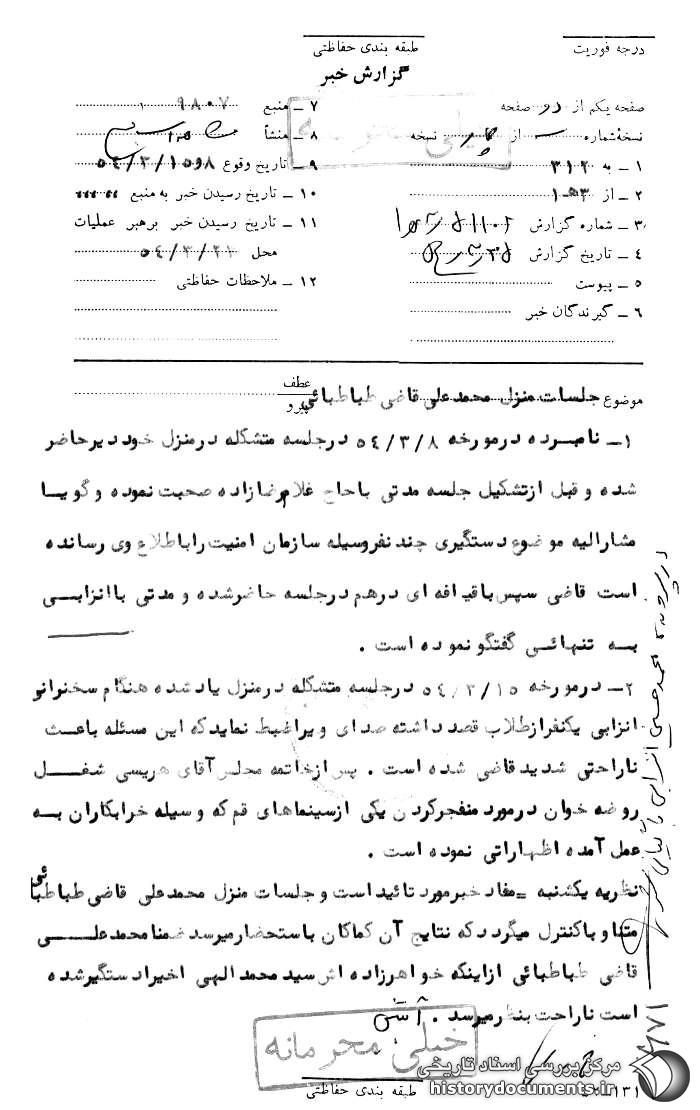 درجه فوریت
طبقه بندی حفاظتی
گزارش خبر
صفحه یکم از دو صفحه
نسخه شماره از چهار نسخه
۱ – به ۳۱۲
۲ – از ۳هـ۱
۳ – شماره گزارش
۴ – تاریخ گزارش
۵ – پیوست
۶ – گیرندگان خبر
۷ – منبع ۹۸۰۷
۸ – منشأ
۹ – تاریخ وقوع ۸و۵۴/۳/۱۵
۱۰ – تاریخ رسیدن خبر به منبع
۱۱ – تاریخ رسیدن خبر برهبر عملیات
محل ۵۴/۳/۲۱
۱۲ – ملاحظات حفاظتی
خیلی محرمانه
موضوع جلسات منزل محمدعلی قاضی طباطبائی
عطف
پیرو
۱– نامبرده درمورخه ۵۴/۳/۸ درجلسه متشکله درمنزل خود دیرحاضر
شده و قبل ازتشکیل جلسه مدتی باحاج غلامرضازاده صحبت نموده وگویـا
مشارالیه موضوع دستگیری چند نفروسیله سازمان امنیت راباطلاع وی رسانده
است قاضی سپس باقیافه ای درهم درجلسه حاضرشده و مدتی باانزابـی
بـه تنهائـی گفتگو نموده است .
۲– درمورخه ۵۴/۳/۱۵ درجلسه متشکله درمنزل یادشده هنگام سخنرانو
انزابی یکنفرازطلاب قصد داشته صدای ویراضبط نمایدکه این مسئله باعث
ناراحتی شدید قاضی شده است . پس ازخاتمه مجلس آقای هریسی شغـل
روضه خوان درمورد منفجرکردن یکی ازسینماهای قم که وسیله خرابکاران بـه
عمل آمده اظهاراتی نموده است .
نظریه یکشنبه = مفاد خبرمورد تائیداست و جلسات منزل محمدعلی قاضی طباطبائی
متناوباکنترل میگردد که نتایج آن کماکان باستحضارمیرسد ضمنا محمدعلـی
قاضی طباطبائی ازاینکه خواهرزاده اش سید محمد الهی اخیرا دستگیرشده
است ناراحت بنظر میرسد .
خیلی محرمانه
طبقه بندی حفاظتی
در پرونده محمدحسن انزابی
مرکز بررسی اسناد تاریخی
historydocuments.ir